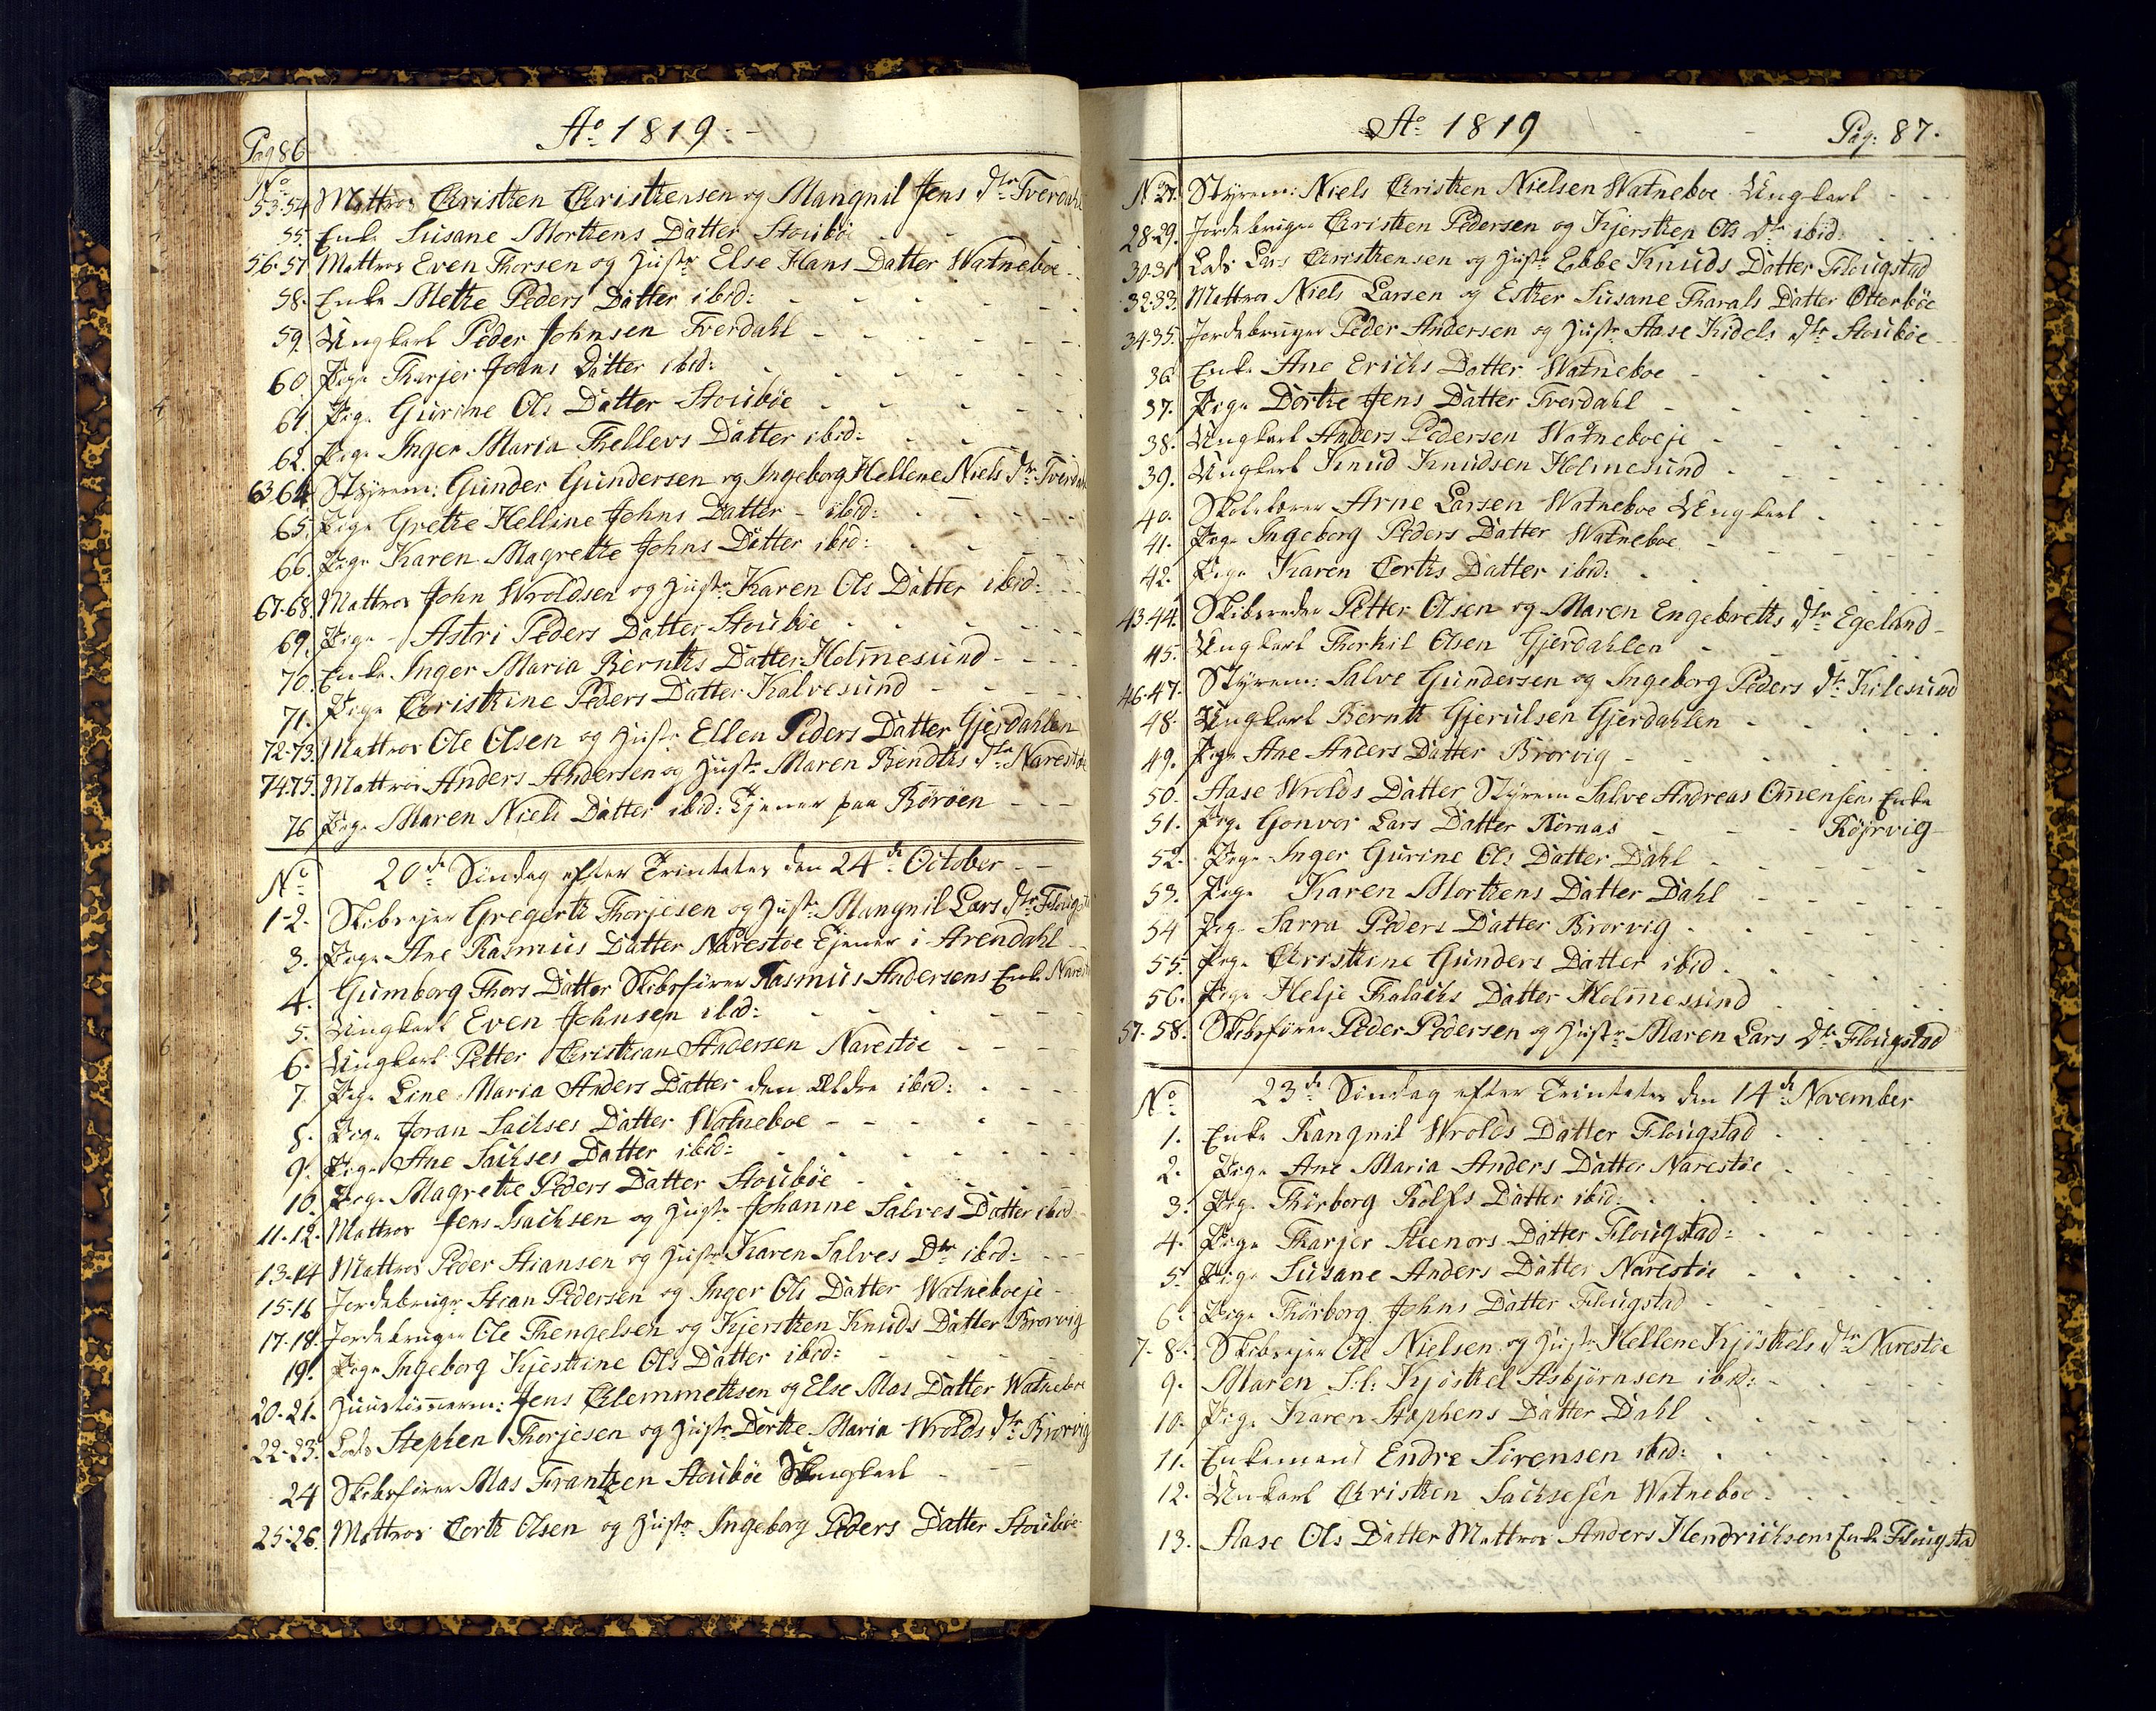 Pag 86
Ao 1819.
No
53.54 Mattros Christhen Christhensen og Mangnil Jens Dtr Tverdahl
55. Enke Susane Morthens Datter Stouböe
56.57 Mattros Even Thorsen og Hustr Else Hans Datter Watneboe
58. Enke Methe Peders Datter ibid:
59. Ungkarl Peder Johnsen Tverdahl
60. Pige Tharjer Johns Datter ibid:
61. Pige Gurine Ols Datter Stouböe
62. Pige Inger Maria Thellevs Datter ibid:
63.64 Styrem: Gunder Gundersen og Ingeborg Hellene Niels Dtr Tverdahl
65. Pige Grethe Helline Johns Datter - ibid:
66. Pige Karen Magrethe Johns Datter ibid:
67.68. Mattros John Wroldsen og Hustr Karen Ols Datter ibid:
69. Pige Astri Peders Datter Stouböe
70. Enke Inger Maria Bernths Datter Holmesund
71. Pige Christhine Peders Datter Kalvesund
72-73. Mattros Ole Olsen og Hustr Ellen Peders Datter Gjerdahlen
74.75. Mattros Anders Andersen og Hustr Maren Bendths Dtr Narestöe
76 Pige Maren Niels Datter ibid: Tjener paa Böröen
No 20de Söndag efter Trinitates den 24de October
1-2. Skibsejer Gregerth Thorjesen og Hustr Mangnil Lars Dtr Flougstad
3. Pige Ane Rasmus Datter Narestöe Tjener i Arendahl
4. Gumborg Thors Datter Skibsförer Rasmus Andersens Enke
5. Ungkarl Even Johnsen ibid:
6. Ungkarl Petter Christhian Andersen Narestöe
7. Pige Line Maria Anders Datter den Ældre ibid:
8. Pige Joran Sachses Datter Watneboe
9. Pige Ane Sachses Datter ibid:
10. Pige Magrethe Peders Datter Stouböe
11-12. Mattros Jens Isachsen og Hustr Johanne Salves Datter ibid
13-14 Mattros Peder Stiansen og Hustr Karen Salves Dtr ibid:
15-16 Jordebruger Stian Pedersen og Inger Ols Datter Watneboeje
17-18. Jordebruger Ole Thengelsen og Kjersthen Knuds Datter Brorvig
19. Pige Ingeborg Kjesthine Ols Datter ibid:
20-21. Huustömrm: Jens Clemmethsen og Else Mas Datter Watneboe
22-23. Lods Stephen Thorjesen og Hustr Dorthe Maria Wrolds Dtr
24 Skibsförer Mas Frantzen Stouböe Ungkarl
25-26. Mattros Corth Olsen og Hustr Ingeborg Peders Datter Stouböe
Ao 1819
Pag: 87.
No 27. Styrem: Niels Christhen Nielsen Watneboe Ungkarl
28-29. Jordebruger Christhen Pedersen og Kjersthen Ols Dtr ibid:
30-31 Lods Lars Christhensen og Hustr Ebbe Knuds Datter Flougstad
32.33. Mattros Niels Larsen og Esther Susane Tharals Datter Otterböe
34-35. Jordebruger Peder Andersen og Hustr Aase Kidels Dtr Stouböe
36. Enke Ane Erichs Datter Watneboe
37. Pige Dorthe Jens Datter Tverdahl
38. Ungkarl Anders Pedersen Watneboeje
39. Ungkarl Knud Knudsen Holmesund
40. Skolelærer Arne Larsen Watneboe Ungkarl
41. Pige Ingeborg Peders Datter Watneboe
42. Pige Karen Corths Datter ibid:
43-44. Skibsreder Petter Olsen og Maren Engebreths Dtr Egeland
45. Ungkarl Thorkil Olsen Gjerdahlen
46-47. Styrem: Salve Gundersen og Ingeborg Peders Dtr Kilesund
48. Ungkarl Bernth Gjerulsen Gjerdahlen
49. Pige Ane Anders Datter Brorvig
50. Aase Wrolds Datter Styrem Salve Andreas Omensens Enke
51. Pige Gonvor Lars Datter Rörnas Röjrvig
52. Pige Inger Gurine Ols Datter Dahl
53. Pige Karen Morthens Datter Dahl
54 Pige Sarra Peders Datter Brorvig
55. Pige Christhine Gunders Datter ibid.
56. Pige Helje Thalachs Datter Holmesund
57-58. Skibsförer Peder Pedersen og Hustr Maren Lars Dtr Flougstad
No 23de Söndag efter Trinitates den 14de November
1. Enke Rangnil Wrolds Datter Flougstad
2. Pige Ane Maria Anders Datter Narestöe
3. Pige Thorborg Rolfs Datter ibid:
4. Pige Tharjer Steenors Datter Flougstad:
5. Pige Susane Anders Datter Narestöe
6. Pige Thörborg Johns Datter Flougstad
7-8. Skibsejer Ole Nielsen og Hustr Hellene Kjösthels Dtr Narestöe
9. Maren S:l: Kjösthel Asbjörnsen ibid:
10. Pige Karen Stephens Datter Dahl
11. Enkemand Endre Sörensen ibid:
12. Unkarl Christhen Sachsesen Watneboe
13. Aase Ols Datter Mattros Anders Hendrichsens Enke Flougstad